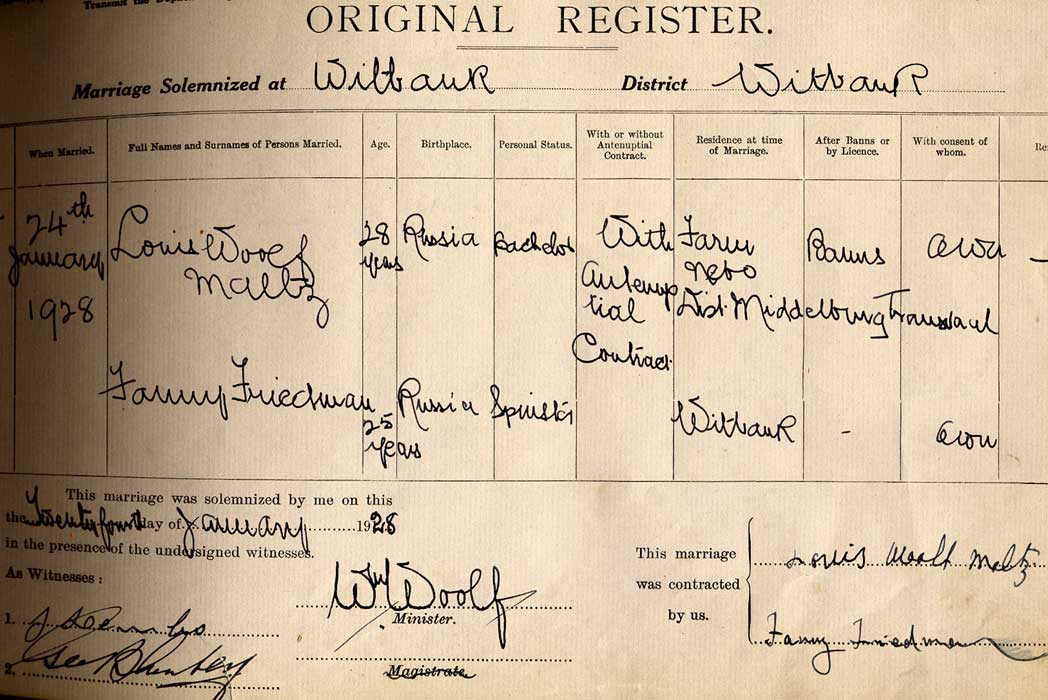 ORIGINAL REGISTER.
Marriage Solemnized at Witbank District Witbank
When Married. Full Names and Surnames of Persons Married. Age. Birthplace. Personal Status. With or without Antenuptial Contract. Residence at time of Marriage. After Banns or by Licence. With consent of whom.
24th January 1928 Louis Woolf Maltz 28 years Russia Bachelor With Antenuptial Contract Farm Nebo Dist. Middelburg Transvaal Banns own
Fanny Friedman 25 years Russia Spinster Witbank - own
This marriage was solemnized by me on this
the Twenty fourth day of January 1928
in the presence of the undersigned witnesses.
As Witnesses :
Woolf
Minister.
1.
2.
Magistrate.
This marriage
was contracted
by us.
Louis Woolf Maltz
Fanny Friedman